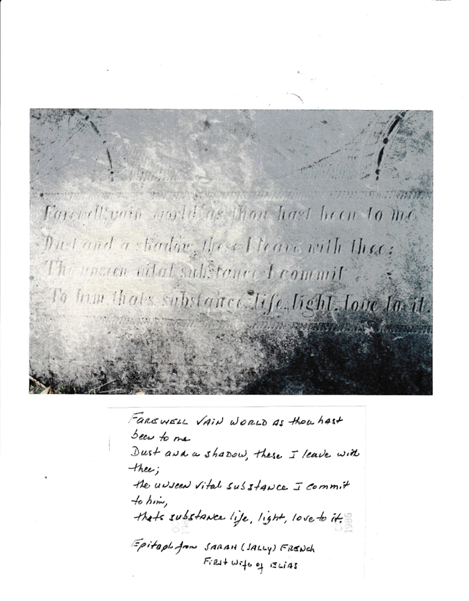 Farewell vain world as thou hast been to me
Dust and a shadow, these I leave with thee;
The unseen vital substance I commit
To him thats substance, life, light, love to it.
FAREWELL VAIN WORLD AS thou hast
been to me
Dust and a shadow, these I leave with
thee;
the unseen vital substance I commit
to him,
thats substance life, light, love to it.
Epitaph from SARAH (SALLY) FRENCH
First wife of ELIAS